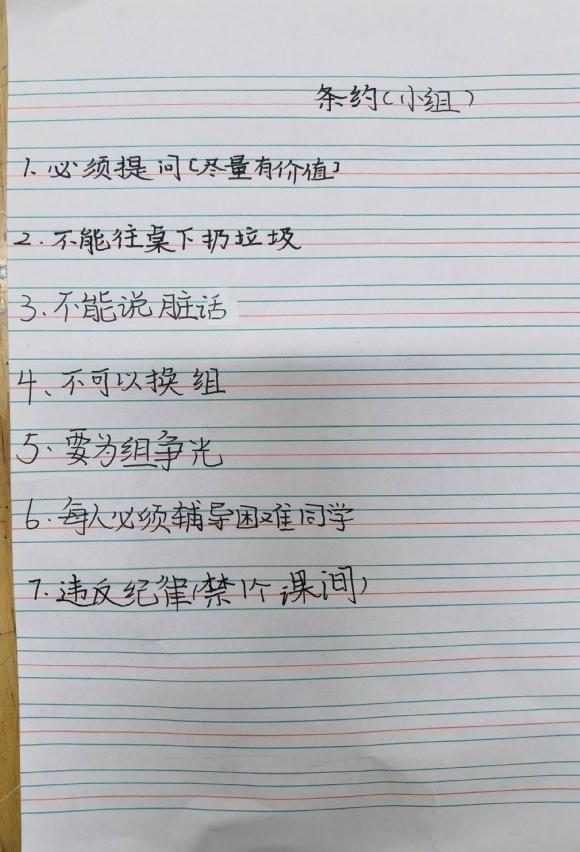 条约(小组)
1.必须提问[尽量有价值]
2.不能往桌下扔垃圾
3.不能说脏话
4、不可以换组
5、要为组争光
6.每人必须辅导困难同学
7.违反纪律(禁1个课间)